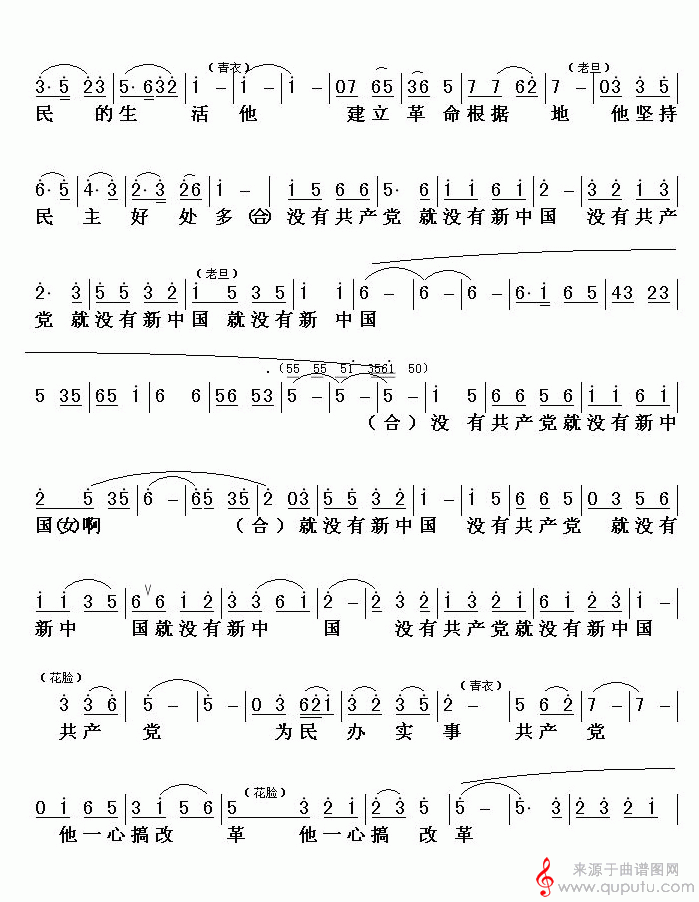 （青衣） （老旦）
3· 5 2 3 | 5· 6 3 2 | 1 - | 1 - | 1 - | 0 7 6 5 | 3 6 5 | 7 7 6 2 | 7 - | 0 3 3 5
民 的生 活他 建立革命根据 地 他坚持
6· 5 | 4· 3 | 2· 3 2 6 | 1 - | 1 5 6 6 | 5· 6 | 1 1 6 1 | 2 - | 3 2 1 3
民 主 好 处多(合)没有共产党 就没有新中国 没有共产
（老旦）
2· 3 | 5 5 3 2 | 1 5 3 5 | 1 1 | 6 - | 6 - | 6 - | 6· 1 6 5 | 4 3 2 3
党 就没有新中国 就没有新 中国
（55 55 51 3561 50）
5 3 5 | 6 5 1 | 6 6 | 5 6 5 3 | 5 - | 5 - | 5 - | 1 5 | 6 6 5 6 | 1 1 6 1
（合）没 有共产党就没有新中
2 5 3 5 | 6 - | 6 5 3 5 | 2 0 3 | 5 5 3 2 | 1 - | 1 5 | 6 6 5 | 0 3 5 6
国(女)啊 （合）就没有新中国 没有共产党 就没有
1 1 3 5 | 6 6 1 2 | 3 3 6 1 | 2 - | 2 3 2 | 1 3 2 1 | 6 1 2 3 | 1 -
新中 国就没有新中 国 没有共产党就没有新中国
（花脸） （青衣）
3 3 6 | 5 - | 5 - | 0 3 6 2 1 | 3 2 3 5 | 2 - | 5 6 2 | 7 - | 7 -
共产 党 为民办实事 共产 党
（花脸）
0 1 6 5 | 3 1 5 6 | 5 3 | 3 2 1 | 2 3 5 | 5 - | 5· 3 | 2 3 2 1
他一心搞改 革 他一心搞 改革
来源于曲谱图网
www.quputu.com